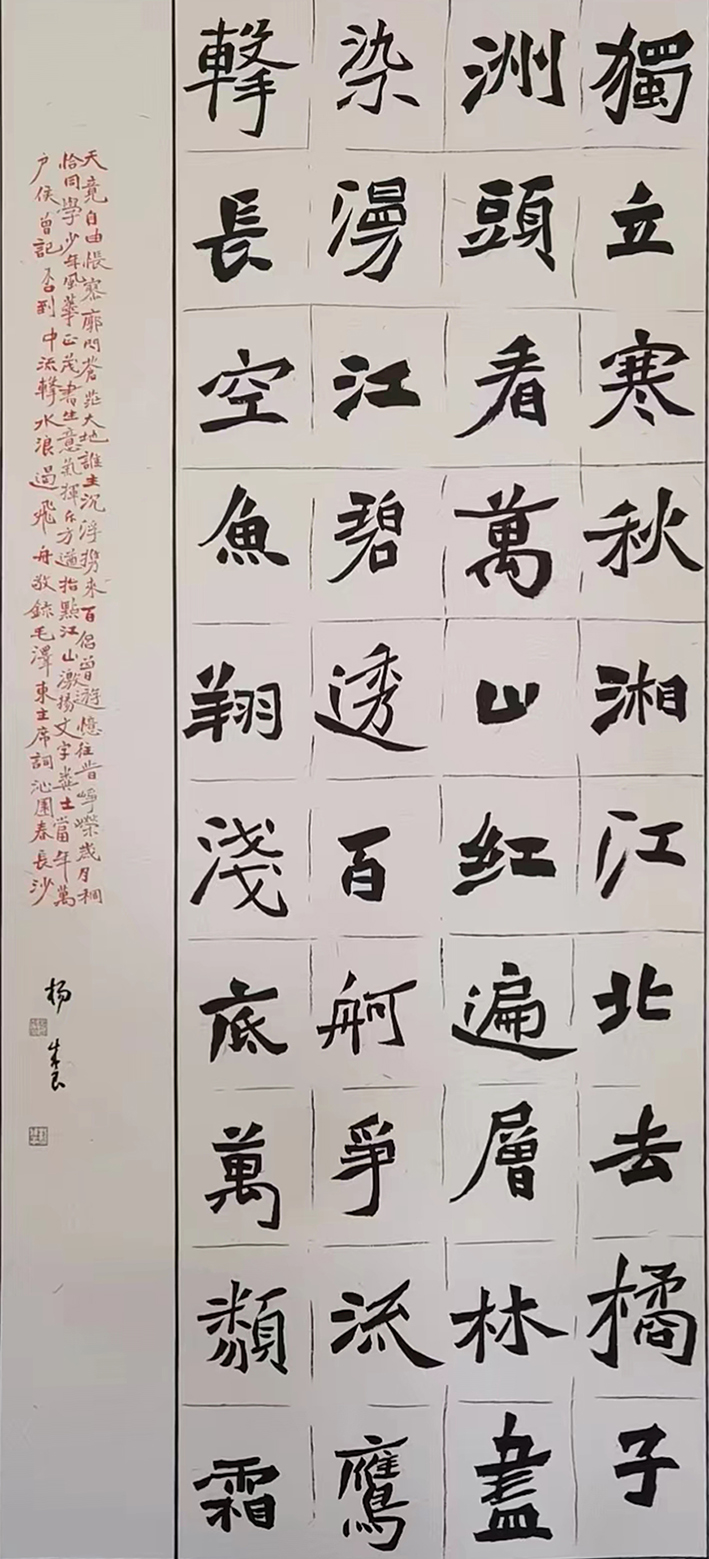 獨立寒秋湘江北去橘子
洲頭看萬山紅遍層林盡
染漫江碧透百舸爭流鷹
擊長空魚翔淺底萬類霜
天竟自由悵寥廓問蒼茫大地誰主沉浮攜來百侶曾遊憶往昔崢嶸歲月稠
恰同學少年風華正茂書生意氣揮斥方遒指點江山激揚文字糞土當年萬
户侯曾記否到中流擊水浪遏飛舟敬錄毛澤東主席詞沁園春長沙
杨